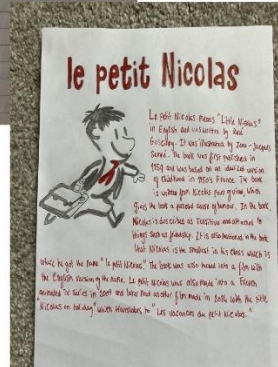 le petit Nicolas
Le petit Nicolas means "Little Nicolas"
in English and was written by René
Goscinny. It was illustrated by Jean-Jacques
Sempé. The book was first published in
1959 and was based on an idealized version
of childhood in 1950s France. The book
is written from Nicolas point of view, which
gives the book a personal sense of humour. In the book,
Nicolas is described as sensitive and
things such as friendship. It is also mentioned in the book
that Nicolas is the smallest in his class which is
where he got the name "le petit Nicolas". The book was also turned into a film with
the English version of the name. Le petit Nicolas was also made into a French
animated TV series in 2009 and later had another film made in 2014 with the title
"Nicolas on holiday" which translates to "Les vacances du petit Nicolas."